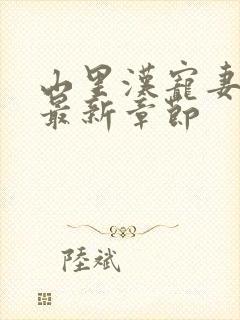 山里漢寵妻
最新章節
陸斌